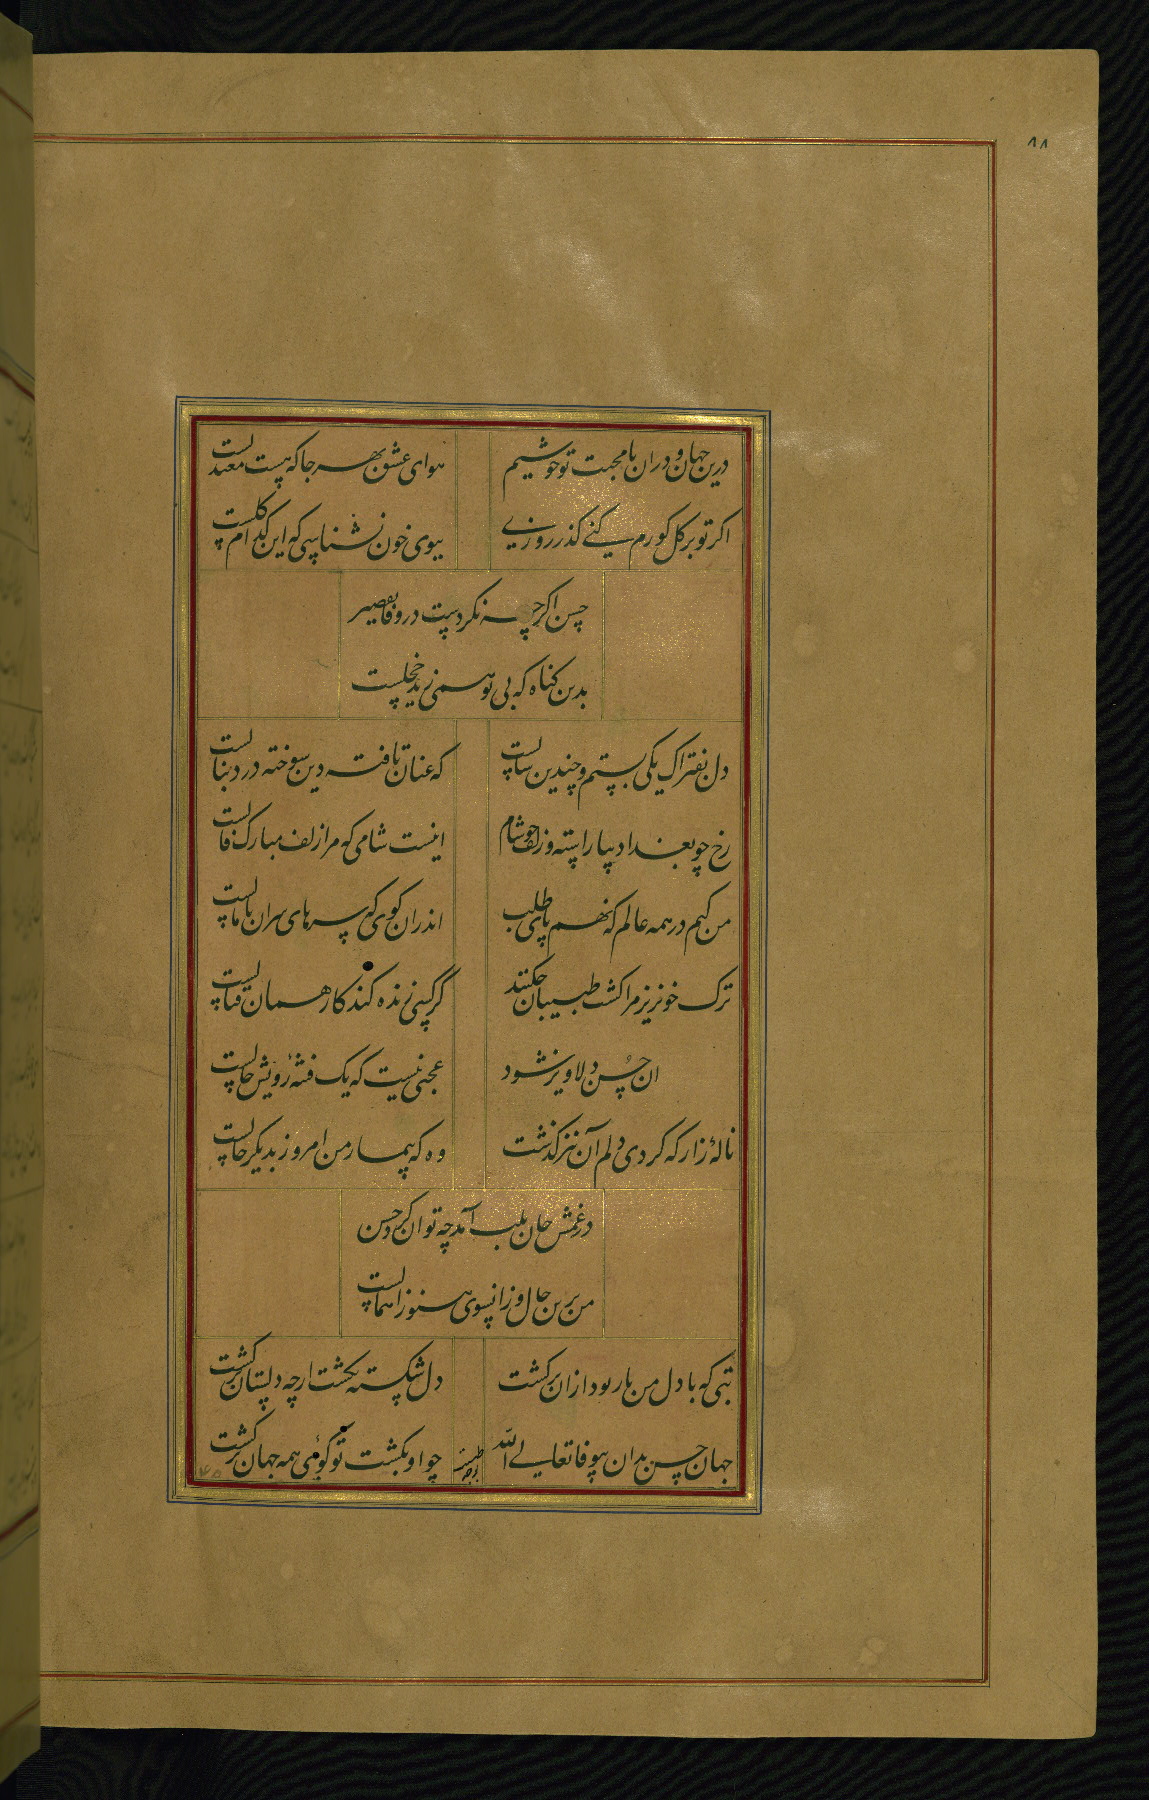 ۸۸
درین جهان و دران با محبت تو خوشیم هوای عشق بهر جا که هست معتدلست
اکر تو بر کل کورم کنی کذر روزی ببوی خون نشناسی که این کدام کلست
حسن اکر چه نکردست در وفا تقصیر
بدین کناه که بی تو همی زید خجلست
دل بفتراک یکی بستم و چندین سالست که عنان تافته وین سوخته در دنبالست
رخ چو بغداد بیاراسته و زلف چو شام اینست شامی که مرا زلف مبارک فالست
من کیم در همه عالم که نهم پای طلب اندران کوی که سرهای سران پامالست
ترک خونریز مرا کشت طبیبان چکنند گر کسی زنده کند کار همان قتالست
ان حسن دلاویز شود عجبی نیست که یک فتنهٔ رویش خالست
نالهٔ زار که کردی دلم آن نیز کذشت وه که بیمار من امروز بدیکر حالست
در غمش جان بلب آمد چه توان کرد حسن
من برین حال و زانسوی هنوز اهمالست
بتی که با دل من یار بود ازان برکشت دل شکسته نکشت ارچه دلستان برکشت
جهان حسن بدان بیوفا تعالی الله چو او بکشت تو کوئی همه جهان برکشت